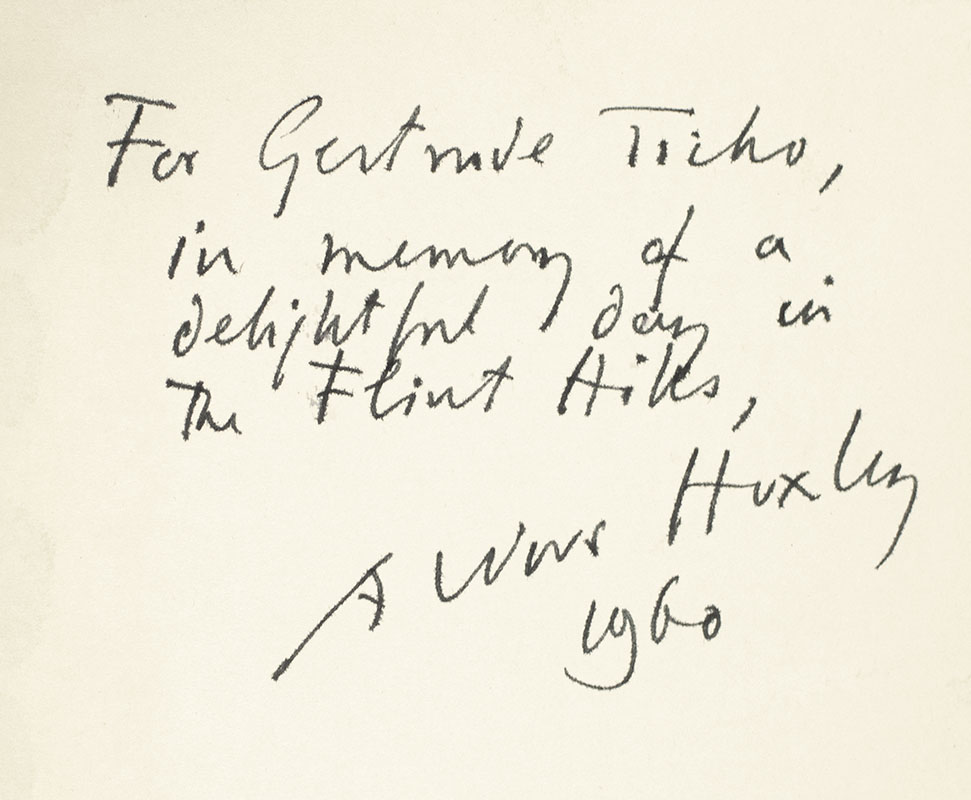 For Gertrude Ticho,
in memory of a
delightful day in
The Flint Hills,
Aldous Huxley
1960